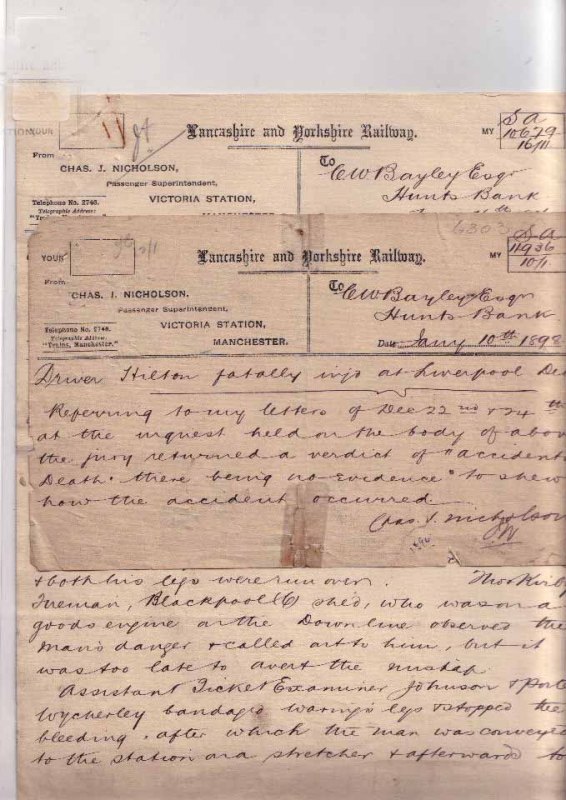 YOUR
Lancashire and Yorkshire Railway.
MY
S A
10679
16/11
From
CHAS. J. NICHOLSON,
Passenger Superintendent,
VICTORIA STATION,
MANCHESTER
Telephone No. 2748.
Telegraphic Address:
To
C W Bayley Esqr
Hunts Bank
6303
YOUR
Lancashire and Yorkshire Railway.
MY
S A
11936
10/1
From
CHAS. J. NICHOLSON.
Passenger Superintendent,
VICTORIA STATION,
MANCHESTER.
Telephone No. 2748.
Telegraphic Address:
"Trains, Manchester."
To
C W Bayley Esqr
Hunts Bank
Date Jany 10th 1898
Driver Hilton fatally injd at Liverpool Dec
Referring to my letters of Dec 22nd & 24th
at the inquest held on the body of above
the jury returned a verdict of "accident
Death" there being no evidence to shew
how the accident occurred.
Chas. J. Nicholson
& both his legs were run over. Thos Kirby
Fireman, Blackpool (C) shed, who was on a
goods engine on the Down line observed the
man's danger & called out to him, but it
was too late to avert the mishap.
Assistant Ticket Examiner Johnson & Porte
Wycherley bandaged Waring's legs & stopped the
bleeding, after which the man was conveyed
to the station on a stretcher & afterwards to